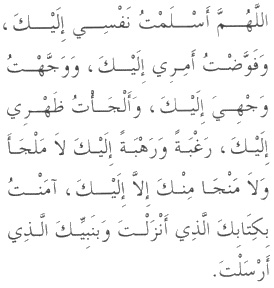 اللَّهُمَّ أَسْلَمْتُ نَفْسِي إِلَيْكَ،
وَفَوَّضْتُ أَمْرِي إِلَيْكَ، وَوَجَّهْتُ
وَجْهِيَ إِلَيْكَ، وَأَلْجَأْتُ ظَهْرِي
إِلَيْكَ، رَغْبَةً وَرَهْبَةً إِلَيْكَ لاَ مَلْجَأَ
وَلاَ مَنْجَا مِنْكَ إِلاَّ إِلَيْكَ، آمَنْتُ
بِكِتَابِكَ الَّذِي أَنْزَلْتَ وَبَنَبِيِّكَ الَّذِي
أَرْسَلْتَ.